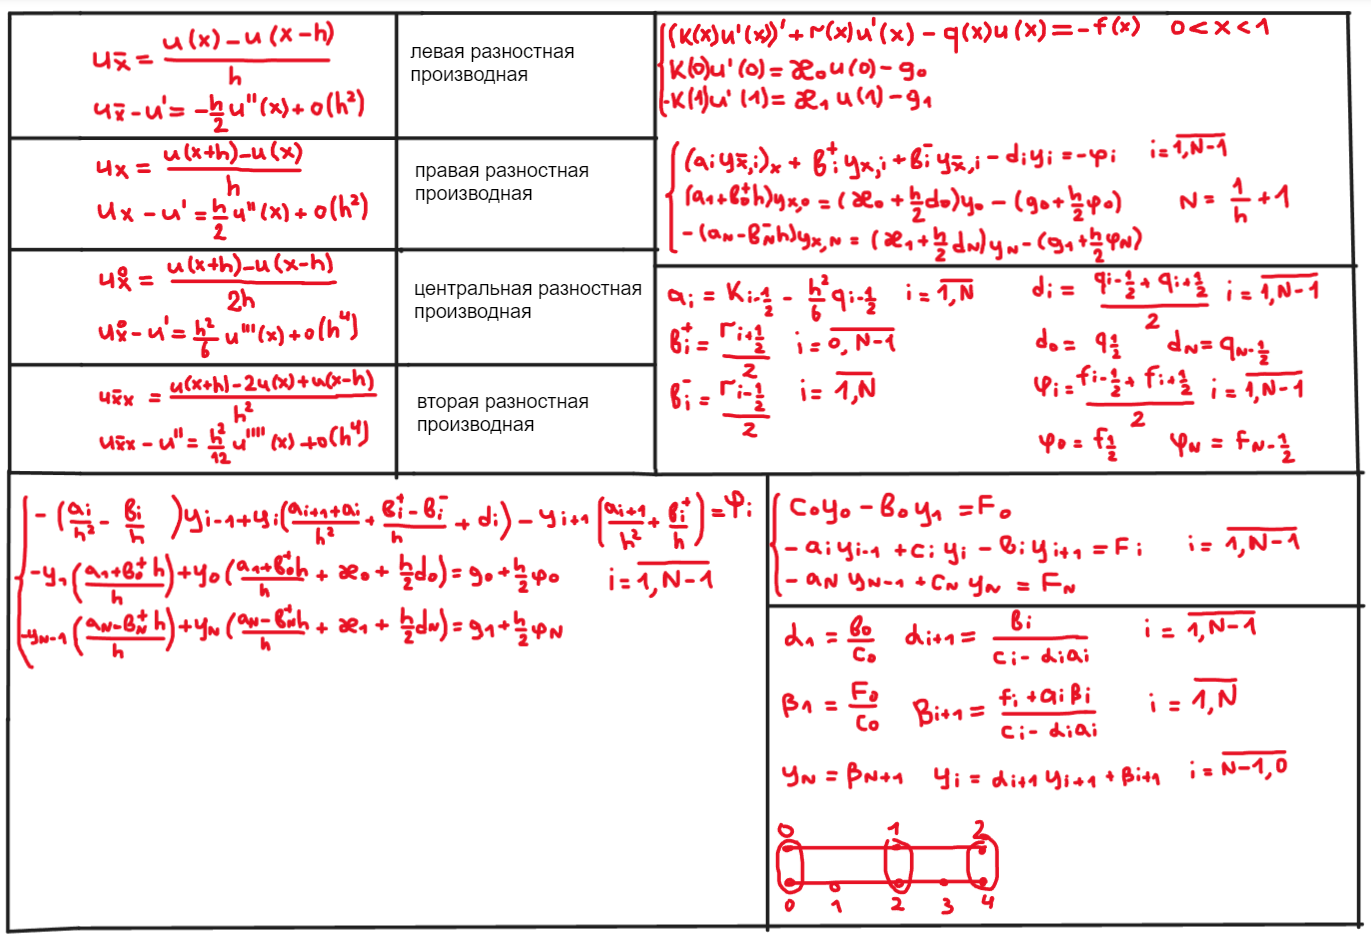 u_x̄ = (u(x) - u(x-h))/h
u_x̄ - u' = -h/2 u''(x) + o(h²)
левая разностная
производная
u_x = (u(x+h) - u(x))/h
u_x - u' = h/2 u''(x) + o(h²)
правая разностная
производная
u_x̊ = (u(x+h) - u(x-h))/2h
u_x̊ - u' = h²/6 u'''(x) + o(h⁴)
центральная разностная
производная
u_x̄x = (u(x+h) - 2u(x) + u(x-h))/h²
u_x̄x - u'' = h²/12 u''''(x) + o(h⁴)
вторая разностная
производная
(k(x)u'(x))' + r(x)u'(x) - q(x)u(x) = -f(x) 0 < x < 1
k(0)u'(0) = æ₀u(0) - g₀
-k(1)u'(1) = æ₁u(1) - g₁
(a_i y_x̄,i)_x + в_i⁺ y_x,i + в_i⁻ y_x̄,i - d_i y_i = -φ_i i = 1,N-1
(a₁ + в₀⁺h)y_x,0 = (æ₀ + h/2 d₀)y₀ - (g₀ + h/2 φ₀) N = 1/h + 1
-(a_N - в_N⁻h)y_x,N = (æ₁ + h/2 d_N)y_N - (g₁ + h/2 φ_N)
a_i = k_i-1/2 - h²/6 q_i-1/2 i = 1,N
в_i⁺ = r_i+1/2 / 2 i = 0,N-1
в_i⁻ = r_i-1/2 / 2 i = 1,N
d_i = (q_i-1/2 + q_i+1/2)/2 i = 1,N-1
d₀ = q_1/2 d_N = q_N-1/2
φ_i = (f_i-1/2 + f_i+1/2)/2 i = 1,N-1
φ₀ = f_1/2 φ_N = f_N-1/2
-(a_i/h² - в_i/h)y_i-1 + y_i((a_i+1 + a_i)/h² + (в_i⁺ - в_i⁻)/h + d_i) - y_i+1(a_i+1/h² + в_i⁺/h) = φ_i
-y₁((a₁ + в₀⁺h)/h) + y₀((a₁ + в₀⁺h)/h + æ₀ + h/2 d₀) = g₀ + h/2 φ₀ i = 1,N-1
-y_N-1((a_N - в_N⁺h)/h) + y_N((a_N - в_N⁺h)/h + æ₁ + h/2 d_N) = g₁ + h/2 φ_N
c₀y₀ - в₀y₁ = F₀
-a_i y_i-1 + c_i y_i - в_i y_i+1 = F_i i = 1,N-1
-a_N y_N-1 + c_N y_N = F_N
α₁ = в₀/c₀ α_i+1 = в_i/(c_i - α_i a_i) i = 1,N-1
β₁ = F₀/c₀ β_i+1 = (f_i + a_i β_i)/(c_i - α_i a_i) i = 1,N
y_N = β_N+1 y_i = α_i+1 y_i+1 + β_i+1 i = N-1,0
0 1 2
0 1 2 3 4